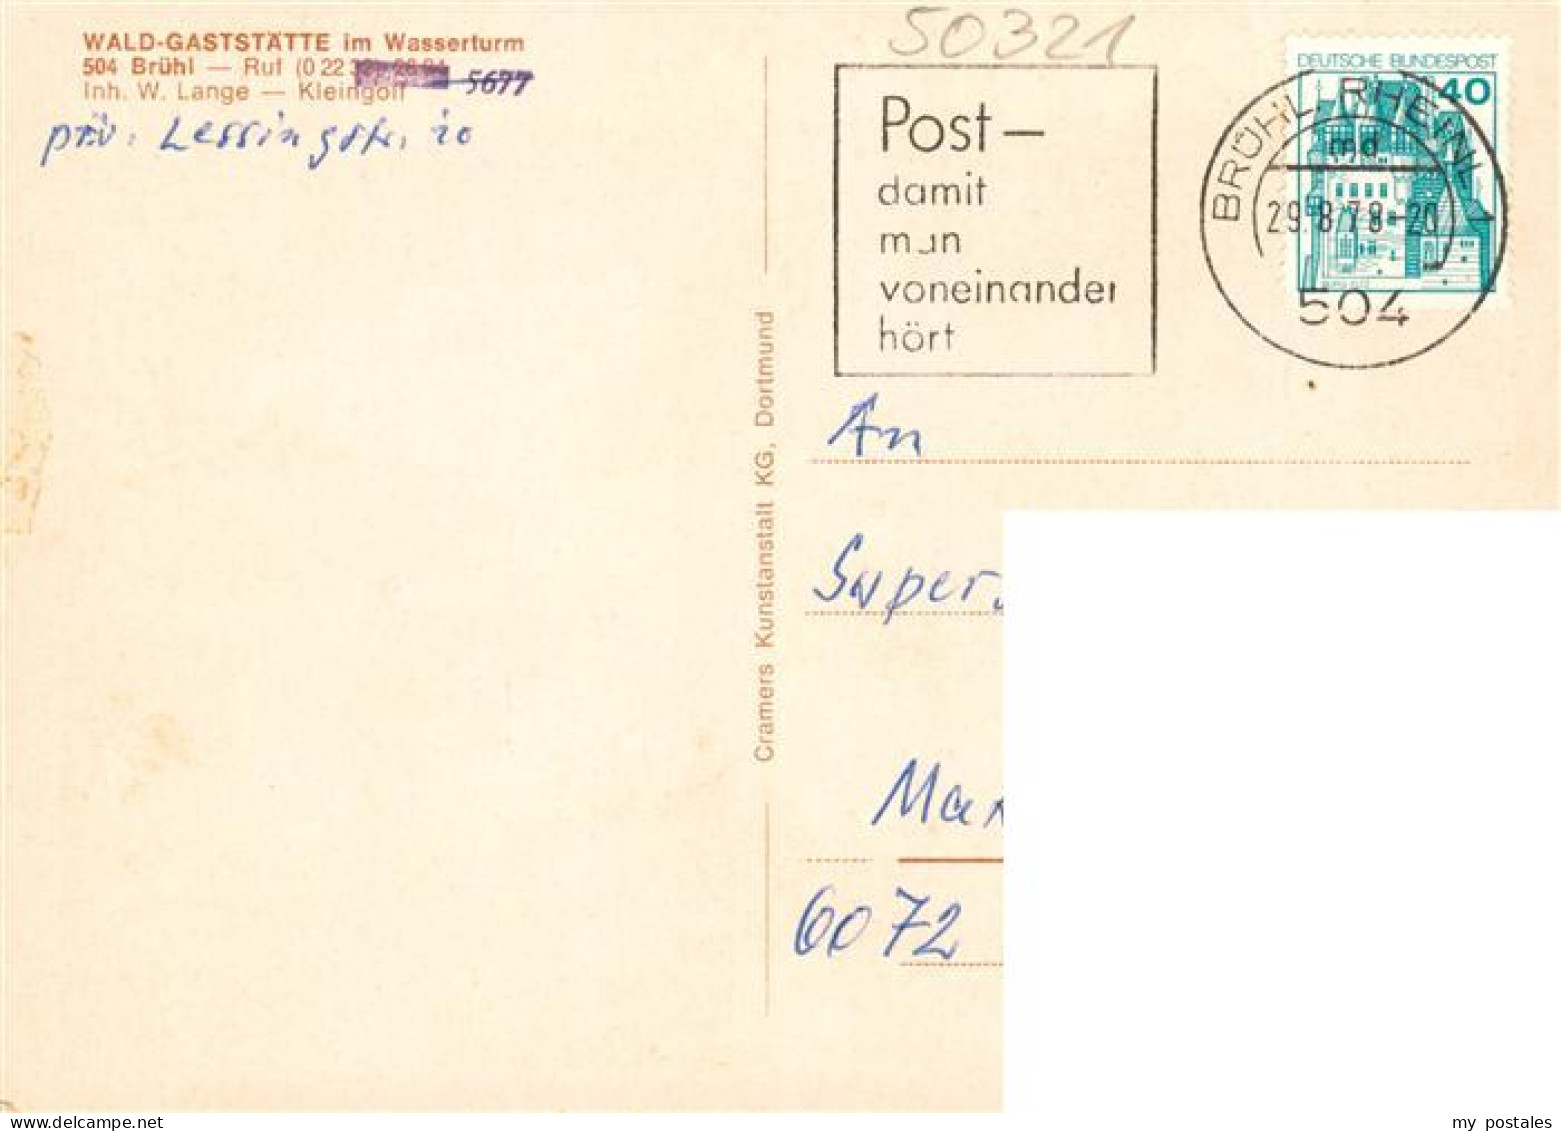 50321
WALD-GASTSTÄTTE im Wasserturm
504 Brühl — Ruf (0 22 32) 5677
Inh. W. Lange — Kleingolf
priv. Lessingstr. 20
Post —
damit
man
voneinander
hört
DEUTSCHE BUNDESPOST
40
BRÜHL, RHEINL 1
md
29.8.78-20
504
Cramers Kunstanstalt KG, Dortmund
An
Super
Mar
6072
my postales